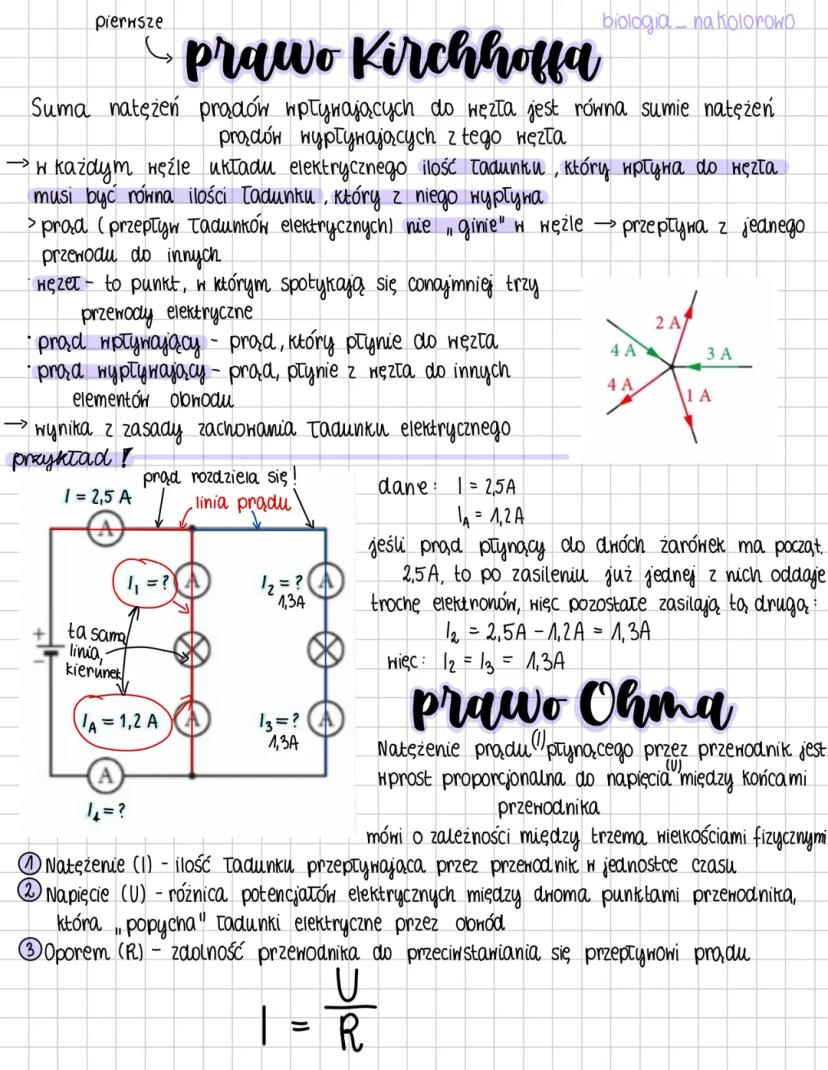 pierwsze
biologia_nakolorowo
prawo Kirchhoffa
Suma natężeń prądów wpływających do węzła jest równa sumie natężeń
prądów wypływających z tego węzła
→ w każdym węźle układu elektrycznego ilość ładunku, który wpływa do węzła
musi być równa ilości ładunku, który z niego wypływa
> prąd (przepływ ładunków elektrycznych) nie „ginie" w węźle → przepływa z jednego
przewodu do innych
· węzeł - to punkt, w którym spotykają się conajmniej trzy
przewody elektryczne
· prąd wpływający - prąd, który płynie do węzła
· prąd wypływający - prąd, płynie z węzła do innych
elementów obwodu
→ wynika z zasady zachowania ładunku elektrycznego
2 A
4 A
3 A
4 A
1 A
przykład!
prąd rozdziela się!
I = 2,5 A
linia prądu
A
I₁ = ?
A
I₂ = ?
A
1,3A
ta sama
linia,
kierunek
+
-
I_A = 1,2 A
A
I₃ = ?
A
1,3A
A
I₄ = ?
dane: I = 2,5A
I_A = 1,2A
jeśli prąd płynący do dwóch żarówek ma począt.
2,5A, to po zasileniu już jednej z nich oddaje
trochę elektronów, więc pozostałe zasilają tą drugą:
I₂ = 2,5A - 1,2A = 1,3A
więc: I₂ = I₃ = 1,3A
prawo Ohma
Natężenie prądu (I) płynącego przez przewodnik jest
wprost proporcjonalna do napięcia (U) między końcami
przewodnika
mówi o zależności między trzema wielkościami fizycznymi
① Natężenie (I) - ilość ładunku przepływająca przez przewodnik w jednostce czasu
② Napięcie (U) - różnica potencjałów elektrycznych między dwoma punktami przewodnika,
która „popycha" ładunki elektryczne przez obwód
③ Oporem (R) - zdolność przewodnika do przeciwstawiania się przepływowi prądu
I = U/R